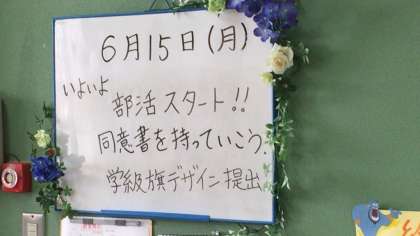 6月15日(月)
いよいよ
部活スタート!!
同意書を持っていこう.
学級旗デザイン提出